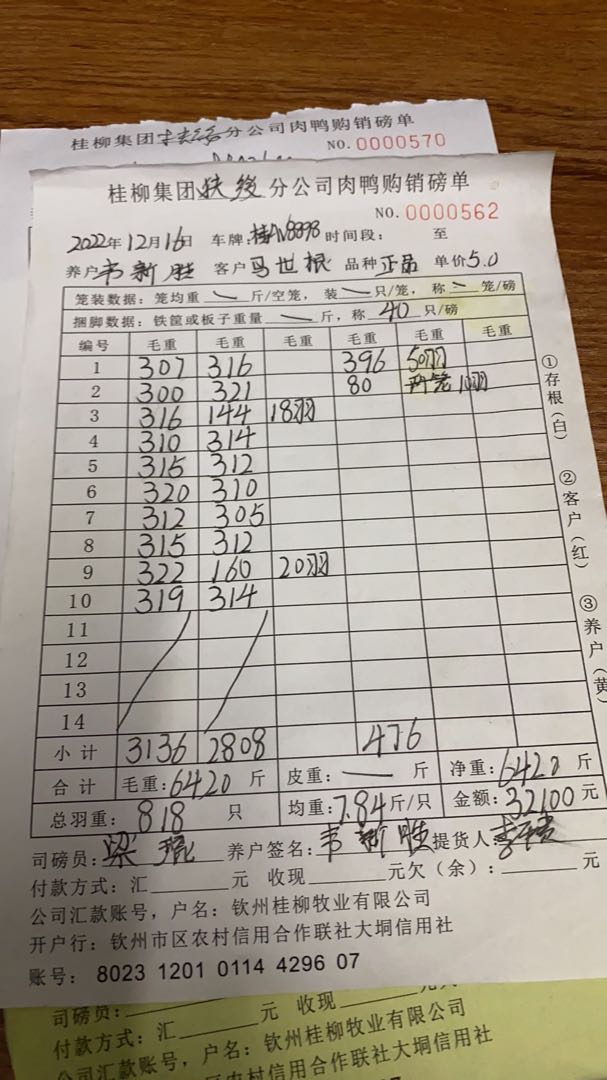 桂柳集团 分公司肉鸭购销磅单
NO. 0000570
桂柳集团扶绥分公司肉鸭购销磅单
NO. 0000562
2022年12月16日 车牌: 时间段: 至
养户韦新胜 客户马世根 品种正品 单价5.0
笼装数据：笼均重 — 斤/空笼，装 — 只/笼，称 — 笼/磅
捆脚数据：铁筐或板子重量 — 斤，称 40 只/磅
编号 毛重 毛重 毛重 毛重 毛重 毛重
1 307 316 396 50羽
2 300 321 80 两笼10羽
3 316 144 18羽
4 310 314
5 315 312
6 320 310
7 312 305
8 315 312
9 322 160 20羽
10 319 314
11
12
13
14
小计 3136 2808 476
合计 毛重:6420斤 皮重: — 斤 净重:6420斤
总羽重: 818 只 均重:7.84斤/只 金额:32100元
司磅员:梁琨 养户签名:韦新胜 提货人
付款方式：汇 元 收现 元欠（余）: 元
公司汇款账号，户名：钦州桂柳牧业有限公司
开户行：钦州市区农村信用合作联社大垌信用社
账号: 8023 1201 0114 4296 07
①存根(白) ②客户(红) ③养户(黄
司磅员:
付款方式：汇 元 收现
公司汇款账号，户名：钦州桂柳牧业有限公司
区农村信用合作联社大垌信用社